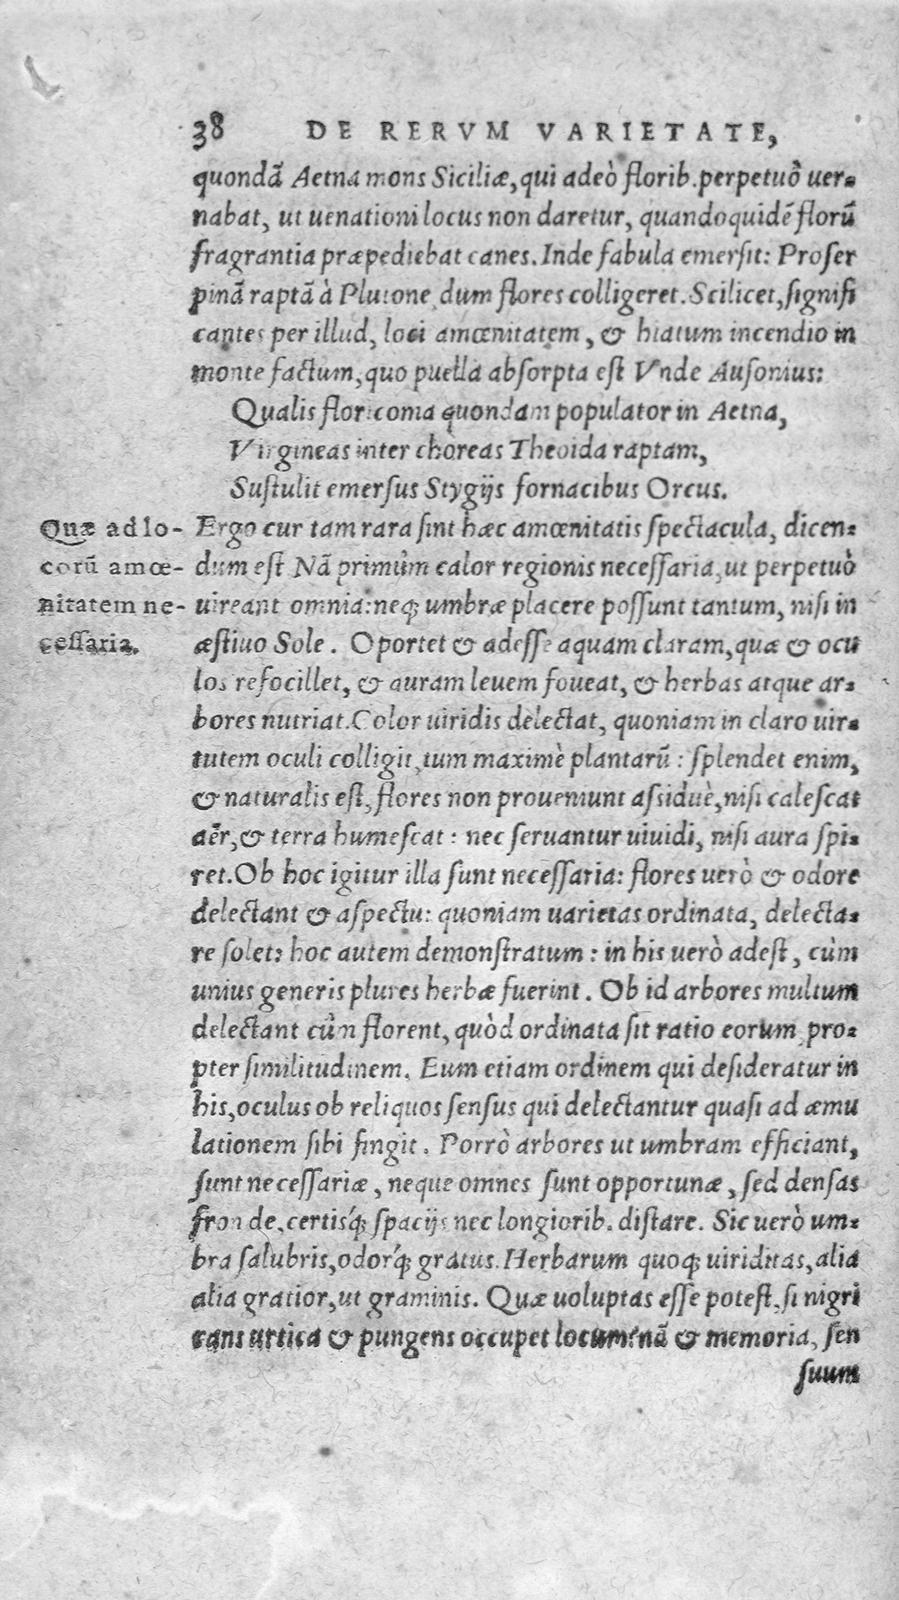 38 DE RERVM VARIETATE,
quondã Aetna mons Siciliæ, qui adeò florib. perpetuò uer-
nabat, ut uenationi locus non daretur, quandoquidẽ florũ
fragrantia præpediebat canes. Inde fabula emersit: Proser
pinã raptã à Plutone dum flores colligeret. Scilicet, signifi
cantes per illud, loci amœnitatem, & hiatum incendio in
monte factum, quo puella absorpta est Vnde Ausonius:
Qualis floricoma quondam populator in Aetna,
Virgineas inter choreas Theoida raptam,
Sustulit emersus Stygijs fornacibus Orcus.
Quæ ad lo-
corũ amœ-
nitatem ne-
cessaria.
Ergo cur tam rara sint hæc amœnitatis spectacula, dicen-
dum est Nã primùm calor regionis necessaria, ut perpetuò
uireant omnia: neq; umbræ placere possunt tantum, nisi in
æstiuo Sole. Oportet & adesse aquam claram, quæ & ocu
los refocillet, & auram leuem foueat, & herbas atque ar-
bores nutriat. Color uiridis delectat, quoniam in claro uir-
tutem oculi colligit, tum maximè plantarũ: splendet enim,
& naturalis est, flores non proueniunt assiduè, nisi calescat
aër, & terra humescat: nec seruantur uiuidi, nisi aura spi-
ret. Ob hoc igitur illa sunt necessaria: flores uerò & odore
delectant & aspectu: quoniam uarietas ordinata, delecta-
re solet: hoc autem demonstratum: in his uerò adest, cùm
unius generis plures herbæ fuerint. Ob id arbores multum
delectant cùm florent, quòd ordinata sit ratio eorum pro-
pter similitudinem. Eum etiam ordinem qui desideratur in
his, oculus ob reliquos sensus qui delectantur quasi ad æmu
lationem sibi fingit. Porrò arbores ut umbram efficiant,
sunt necessariæ, neque omnes sunt opportunæ, sed densas
fronde, certisq́; spacijs nec longiorib. distare. Sic uerò um-
bra salubris, odorq́; gratus. Herbarum quoq; uiriditas, alia
alia gratior, ut graminis. Quæ uoluptas esse potest, si nigri
cans urtica & pungens occupet locum: nã & memoria, sen
suum